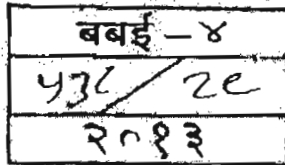 बबई - ४
५३८ / २९
२०१३